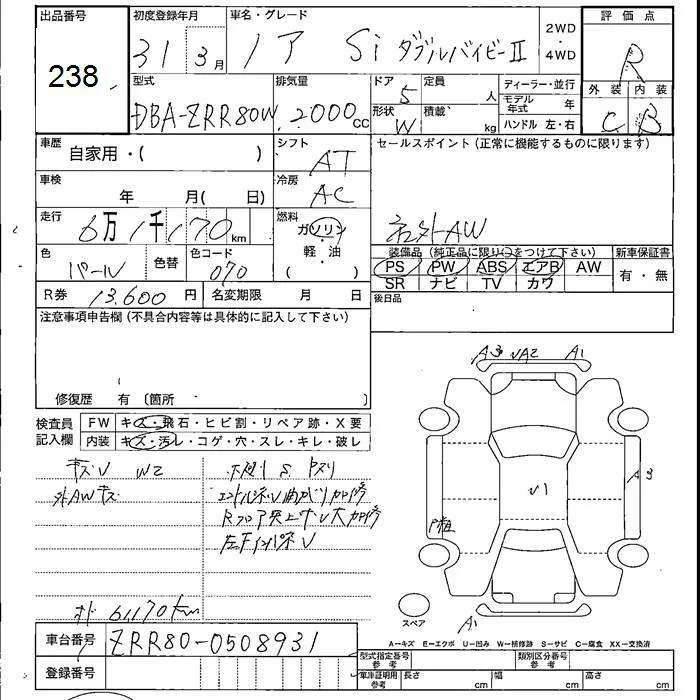 出品番号
238
初度登録年月
31 3月
車名・グレード
ノア Si ダブルバイビーII
2WD
・
4WD
評価点
R
外装 内装
C B
型式
DBA-ZRR80W
排気量
2000cc
ドア 5
定員 人
形状 W
積載 kg
ディーラー・並行
モデル年式 年
ハンドル 左・右
車歴
自家用・( )
シフト
AT
車検
年 月( 日)
冷房
AC
走行
6万1千170km
燃料
ガソリン
・
軽・油
( )
色
パール
色替
色コード
070
R券 13,600円
名変期限 月 日
セールスポイント(正常に機能するものに限ります)
社外AW
装備品(純正品に限り○をつけて下さい)
PS PW ABS エアB AW
SR ナビ TV カワ
新車保証書
有・無
後日品
注意事項申告欄(不具合内容等は具体的に記入して下さい)
修復歴 有 〔箇所 〕
検査員
記入欄
FW キズ・飛石・ヒビ割・リペア跡・X要
内装 キズ・汚レ・コゲ・穴・スレ・キレ・破レ
キズU W2
外AWキズ
下廻りS
U曲がり加修
Rフロア突上げU大加修
左FインパネU
61,170km
A3 UA2 A1
U1
A3
P補
A1
スペア
A=キズ E=エクボ U=凹み W=補修跡 S=サビ C=腐食 XX=交換済
車台番号 ZRR80-0508931
登録番号
型式指定番号
参考
類別区分番号
参考
車庫証明用
参考
長さ cm
幅 cm
高さ cm